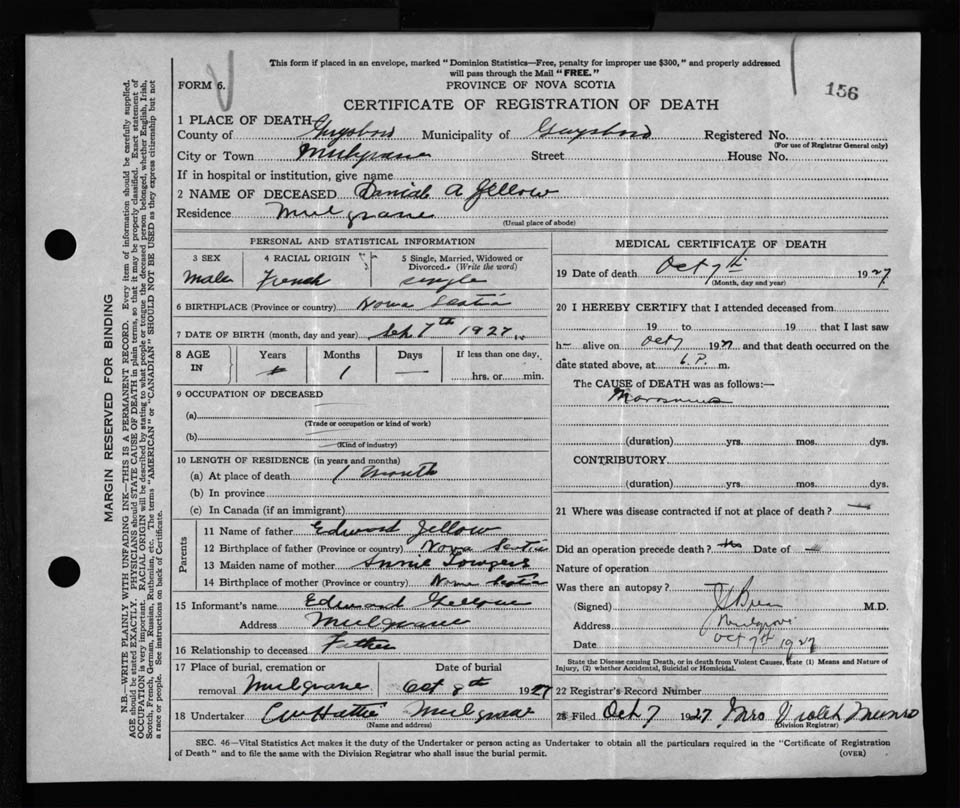 This form if placed in an envelope, marked "Dominion Statistics—Free, penalty for improper use $300," and properly addressed
will pass through the Mail "FREE."
FORM 6.
PROVINCE OF NOVA SCOTIA
156
CERTIFICATE OF REGISTRATION OF DEATH
1 PLACE OF DEATH
County of Guysboro Municipality of Guysboro Registered No.
(For use of Registrar General only)
City or Town Mulgrave Street House No.
If in hospital or institution, give name
2 NAME OF DECEASED Daniel A Jellow
Residence Mulgrave
(Usual place of abode)
PERSONAL AND STATISTICAL INFORMATION
3 SEX 4 RACIAL ORIGIN 5 Single, Married, Widowed or
Divorced. (Write the word)
Male French single
6 BIRTHPLACE (Province or country) Nova Scotia
7 DATE OF BIRTH (month, day and year) Sept 7th 1927
8 AGE IN Years Months Days If less than one day,
1 — hrs. or min.
9 OCCUPATION OF DECEASED
(a)
(Trade or occupation or kind of work)
(b)
(Kind of industry)
10 LENGTH OF RESIDENCE (in years and months)
(a) At place of death 1 Month
(b) In province
(c) In Canada (if an immigrant)
Parents
11 Name of father Edward Jellow
12 Birthplace of father (Province or country) Nova Scotia
13 Maiden name of mother Annie
14 Birthplace of mother (Province or country) Nova Scotia
15 Informant's name Edward
Address Mulgrave
16 Relationship to deceased Father
17 Place of burial, cremation or Date of burial
removal Mulgrave Oct 8th 1927
18 Undertaker Mulgrave
(Name and address)
MEDICAL CERTIFICATE OF DEATH
19 Date of death Oct 7th 1927
(Month, day and year)
20 I HEREBY CERTIFY that I attended deceased from
19 to 19 that I last saw
h— alive on Oct 7 1927 and that death occurred on the
date stated above, at 6 P. m.
The CAUSE of DEATH was as follows:—
Marasmus
(duration) yrs. mos. dys.
CONTRIBUTORY
(duration) yrs. mos. dys.
21 Where was disease contracted if not at place of death? —
Did an operation precede death? No Date of —
Nature of operation
Was there an autopsy?
(Signed) M.D.
Address Mulgrave
Date Oct 7th 1927
State the Disease causing Death, or in death from Violent Causes, state (1) Means and Nature of
Injury, (2) whether Accidental, Suicidal or Homicidal.
22 Registrar's Record Number
23 Filed Oct 7 1927 Mrs Violet Munro
(Division Registrar)
SEC. 46—Vital Statistics Act makes it the duty of the Undertaker or person acting as Undertaker to obtain all the particulars required in the "Certificate of Registration
of Death" and to file the same with the Division Registrar who shall issue the burial permit.
(OVER)
MARGIN RESERVED FOR BINDING
N.B.—WRITE PLAINLY WITH UNFADING INK—THIS IS A PERMANENT RECORD. Every item of information should be carefully supplied.
AGE should be stated EXACTLY. PHYSICIANS should STATE CAUSE OF DEATH in plain terms, so that it may be properly classified. Exact statement of
OCCUPATION is very important. RACIAL ORIGIN will be described by stating to what people or tongue the deceased person belonged, whether English, Irish,
Scotch, French, German, Russian, Ruthenian, etc. The terms "AMERICAN" or "CANADIAN" SHOULD NOT BE USED as they express citizenship but not
a race or people. See instructions on back of Certificate.